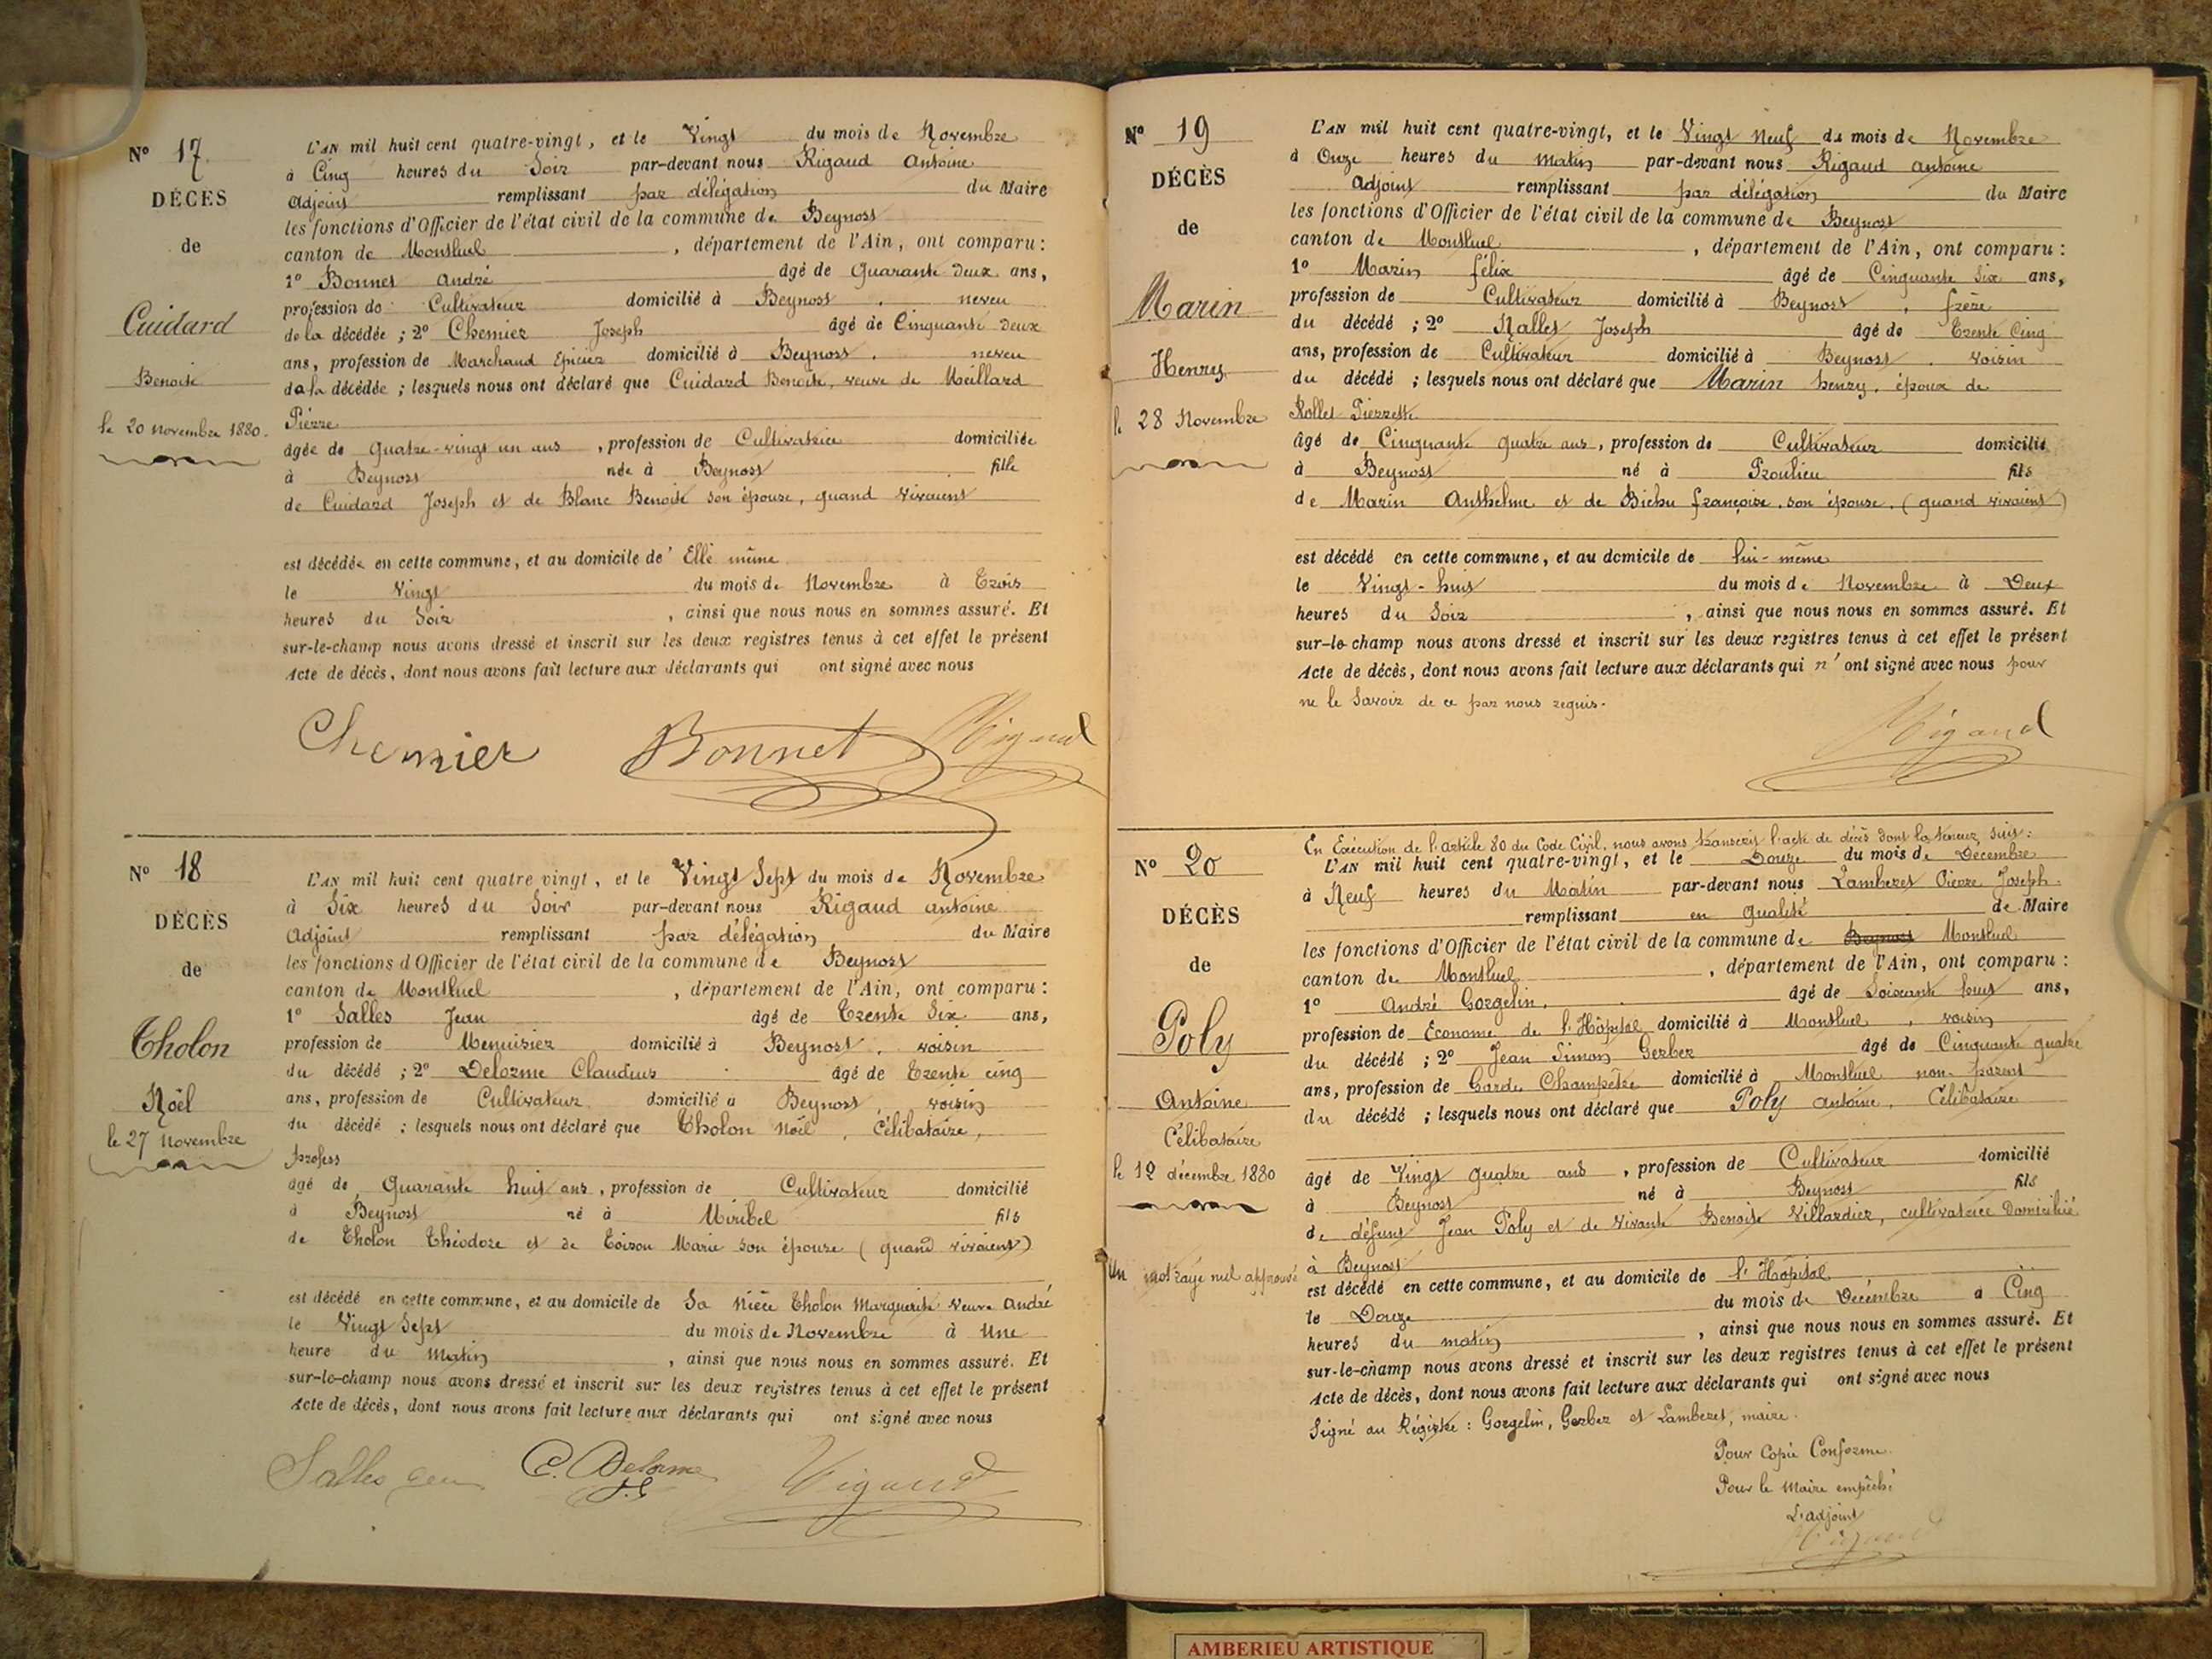 N° 17
DÉCÈS
de
Cuidard
Benoite
le 20 novembre 1880.
L'AN mil huit cent quatre-vingt, et le Vingt du mois de Novembre
à Cinq heures du Soir par-devant nous Rigaud Antoine
Adjoint remplissant par délégation du Maire
les fonctions d'Officier de l'état civil de la commune de Beynost
canton de Montluel , département de l'Ain, ont comparu :
1° Bonnet André âgé de Quarante Deux ans,
profession de Cultivateur domicilié à Beynost . neveu
de la décédée ; 2° Chemier Joseph âgé de Cinquante Deux
ans, profession de Marchand Epicier domicilié à Beynost . neveu
de la décédée ; lesquels nous ont déclaré que Cuidard Benoite, veuve de Meillard
Pierre
âgée de Quatre-vingt un ans , profession de Cultivatrice domiciliée
à Beynost née à Beynost fille
de Cuidard Joseph et de Blanc Benoite son épouse, quand vivaient
est décédée en cette commune, et au domicile de Elle même
le Vingt du mois de Novembre à Trois
heures du Soir , ainsi que nous nous en sommes assuré. Et
sur-le-champ nous avons dressé et inscrit sur les deux registres tenus à cet effet le présent
Acte de décès, dont nous avons fait lecture aux déclarants qui ont signé avec nous
Chemier Bonnet Rigaud
N° 18
DÉCÈS
de
Tholon
Noël
le 27 Novembre
L'AN mil huit cent quatre vingt, et le Vingt Sept du mois de Novembre
à Six heures du Soir par-devant nous Rigaud Antoine
Adjoint remplissant par délégation du Maire
les fonctions d'Officier de l'état civil de la commune de Beynost
canton de Montluel , département de l'Ain, ont comparu :
1° Salles Jean âgé de Trente Six ans,
profession de Menuisier domicilié à Beynost . voisin
du décédé ; 2° Delorme Claudius âgé de Trente cinq
ans, profession de Cultivateur domicilié à Beynost , voisin
du décédé ; lesquels nous ont déclaré que Tholon Noël , Célibataire,
profess
âgé de Quarante huit ans , profession de Cultivateur domicilié
à Beynost né à Miribel fils
de Tholon Théodore et de Toison Marie son épouse (quand vivaient)
est décédé en cette commune, et au domicile de Sa nièce Tholon Marguerite Veuve André
le Vingt Sept du mois de Novembre à Une
heure du Matin , ainsi que nous nous en sommes assuré. Et
sur-le-champ nous avons dressé et inscrit sur les deux registres tenus à cet effet le présent
Acte de décès, dont nous avons fait lecture aux déclarants qui ont signé avec nous
Salles Jean C. Delorme Rigaud
N° 19
DÉCÈS
de
Marin
Henry
le 28 Novembre
L'AN mil huit cent quatre-vingt, et le Vingt Neuf du mois de Novembre
à Onze heures du Matin par-devant nous Rigaud Antoine
Adjoint remplissant par délégation du Maire
les fonctions d'Officier de l'état civil de la commune de Beynost
canton de Montluel , département de l'Ain, ont comparu :
1° Marin félix âgé de Cinquante Six ans,
profession de Cultivateur domicilié à Beynost , frère
du décédé ; 2° Nallet Joseph âgé de Trente Cinq
ans, profession de Cultivateur domicilié à Beynost . voisin
du décédé ; lesquels nous ont déclaré que Marin henry, époux de
Rollet Pierrette
âgé de Cinquante quatre ans , profession de Cultivateur domicilié
à Beynost né à Proulieu fils
de Marin Anthelme et de Bichu françoise, son épouse, (quand vivaient)
est décédé en cette commune, et au domicile de lui-même
le Vingt-huit du mois de Novembre à Deux
heures du Soir , ainsi que nous nous en sommes assuré. Et
sur-le-champ nous avons dressé et inscrit sur les deux registres tenus à cet effet le présent
Acte de décès, dont nous avons fait lecture aux déclarants qui n'ont signé avec nous pour
ne le Savoir de ce par nous requis.
Rigaud
N° 20
DÉCÈS
de
Poly
Antoine
Célibataire
le 12 décembre 1880
Un mot rayé nul approuvé
En Exécution de l'article 80 du Code Civil, nous avons transcrit l'acte de décès dont la teneur suit :
L'AN mil huit cent quatre-vingt, et le Douze du mois de Décembre
à Neuf heures du Matin par-devant nous Lamberet Pierre Joseph
remplissant en qualité de Maire
les fonctions d'Officier de l'état civil de la commune de Beynost Montluel
canton de Montluel , département de l'Ain, ont comparu :
1° André Gorgelin, âgé de Soixante huit ans,
profession de Econome de l'Hôpital domicilié à Montluel , voisin
du décédé ; 2° Jean Simon Gerber âgé de Cinquante quatre
ans, profession de Garde Champêtre domicilié à Montluel non-parent
du décédé ; lesquels nous ont déclaré que Poly antoine, Célibataire
âgé de Vingt quatre ans , profession de Cultivateur domicilié
à Beynost né à Beynost fils
de défunt Jean Poly et de vivante Benoite Villardier, cultivatrice Domiciliée
à Beynost
est décédé en cette commune, et au domicile de l'Hôpital
le Douze du mois de Décembre à Cinq
heures du matin , ainsi que nous nous en sommes assuré. Et
sur-le-champ nous avons dressé et inscrit sur les deux registres tenus à cet effet le présent
Acte de décès, dont nous avons fait lecture aux déclarants qui ont signé avec nous
Signé au Régistre : Gorgelin, Gerber et Lamberet, maire.
Pour Copie Conforme
Pour le Maire empêché
L'adjoint
Rigaud
AMBERIEU ARTISTIQUE